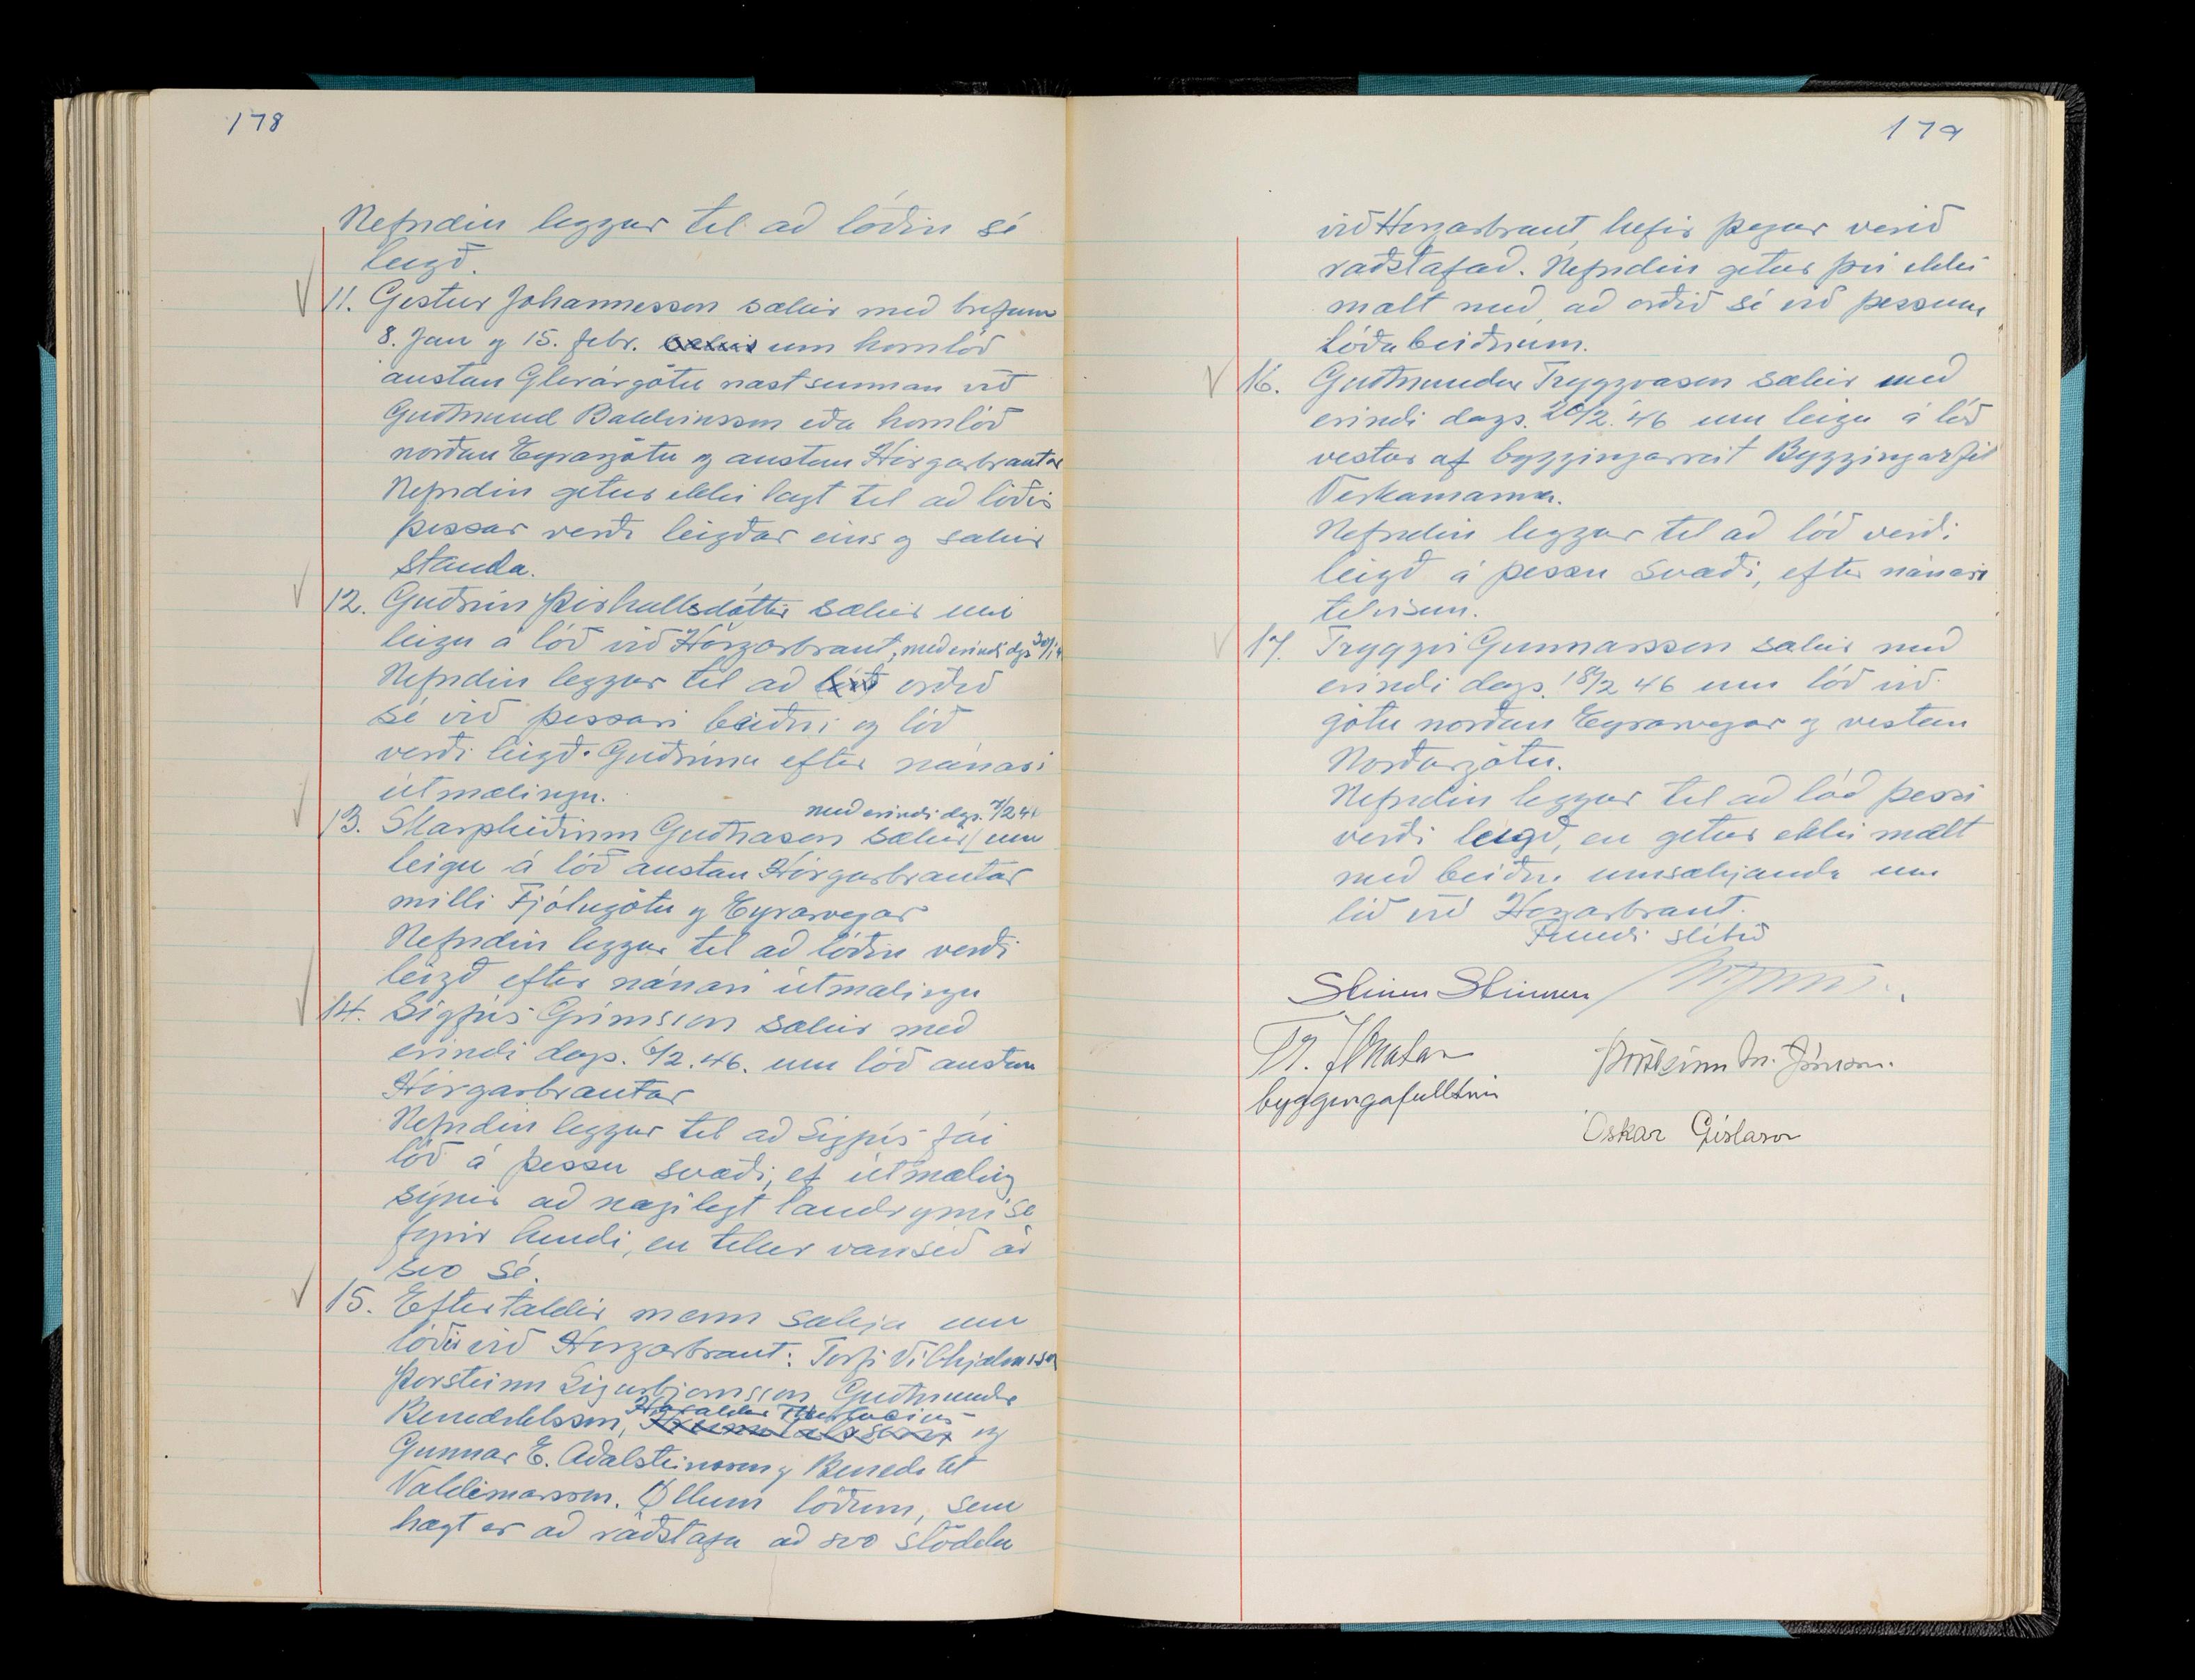 178
Nefndin leggur til að lóðin sé
leigð.
11. Gestur Jóhannesson sækir með bréfum
8. Jan og 15. febr. sækir um hornlóð
austan Glerárgötu næst sunnan við
Guðmund Baldvinsson eða hornlóð
norðan Eyrargötu og austan Hörgárbrautar
Nefndin getur ekki lagt til að lóðir
þessar verði leigðar eins og sakir
standa.
12. Guðrún Þórhallsdóttir sækir um
leigu á lóð við Hörgárbraut, með erindi dgs 30/1 4
Nefndin leggur til að orðið
sé við þessari beiðni og lóð
verði leigð Guðrúnu eftir nánari
útmælingu.
með erindi dgs. 7/2 4
13. Skarphéðinn Guðnason sækir um
leigu á lóð austan Hörgárbrautar
milli Fjólugötu og Eyrarvegar
Nefndin leggur til að lóðin verði
leigð eftir nánari útmælingu
14. Sigfús Grímsson sækir með
erindi dags. 6/2. 46. um lóð austan
Hörgárbrautar
Nefndin leggur til að Sigfús fái
lóð á þessu svæði, ef útmæling
sýnir að nægilegt landrými sé
fyrir hendi, en telur vanséð að
svo sé.
15. Eftirtaldir menn sækja um
lóðir við Hörgárbraut: Torfi Vilhjálmsson
Þorsteinn Sigurbjörnsson Guðmundur
Haraldur Thorlacius
Benediktsson, og
Gunnar E. Aðalsteinsson og Benedikt
Valdemarsson. Öllum lóðum, sem
hægt er að ráðstafa að svo stöddu
179
við Hörgárbraut, hefir þegar verið
ráðstafað. Nefndin getur því ekki
mælt með, að orðið sé við þessum
lóðabeiðnum.
16. Guðmundur Tryggvason sækir með
erindi dags. 20/2. '46 um leigu á lóð
vestur af byggingarreit Byggingarfél
Verkamanna.
Nefndin leggur til að lóð verði
leigð á þessu svæði, eftir nánari
tilvísun.
17. Tryggvi Gunnarsson sækir með
erindi dags. 18/2 46 um lóð við
götu norðan Eyrarvegar og vestan
Norðurgötu.
Nefndin leggur til að lóð þessi
verði leigð, en getur ekki mælt
með beiðni umsækjanda um
lóð við Hörgárbraut.
Fundi slitið
Steinn Steinsen
byggingafulltrúi
Þorsteinn Jónsson.
Oskar Gíslason